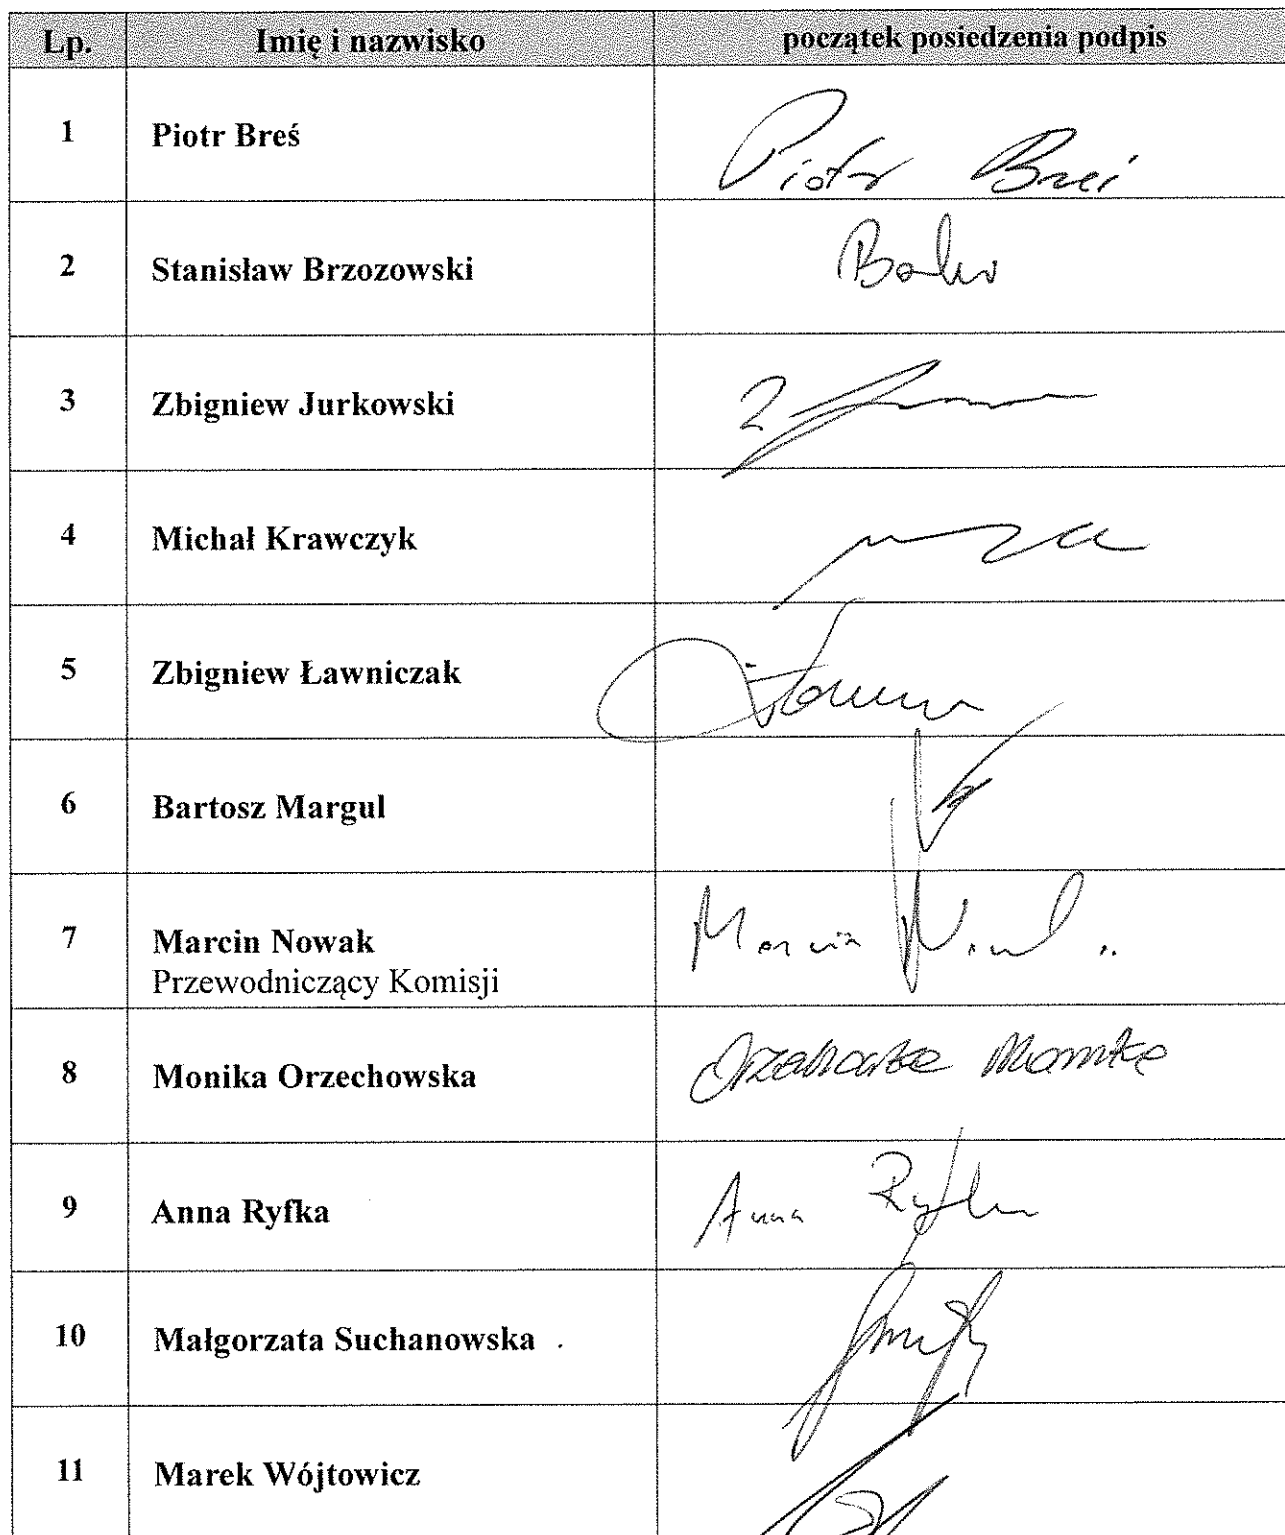 Lp. Imię i nazwisko początek posiedzenia podpis
1 Piotr Breś Piotr Breś
2 Stanisław Brzozowski
3 Zbigniew Jurkowski
4 Michał Krawczyk
5 Zbigniew Ławniczak
6 Bartosz Margul
7 Marcin Nowak Marcin Nowak
Przewodniczący Komisji
8 Monika Orzechowska Orzechowska Monika
9 Anna Ryfka Anna Ryfka
10 Małgorzata Suchanowska
11 Marek Wójtowicz